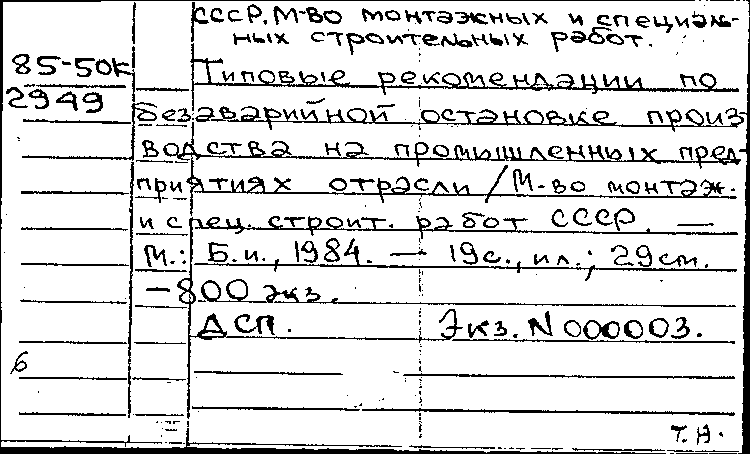 СССР. М-во монтажных и специаль-
ных строительных работ.
85-50к
2949
Типовые рекомендации по
безаварийной остановке произ-
водства на промышленных пред-
приятиях отрасли / М-во монтаж.
и спец. строит. работ СССР. —
М.: Б. и., 1984. — 19с., ил.; 29см.
— 800 экз.
ДСП. Экз. N 000003.
6
т. н.